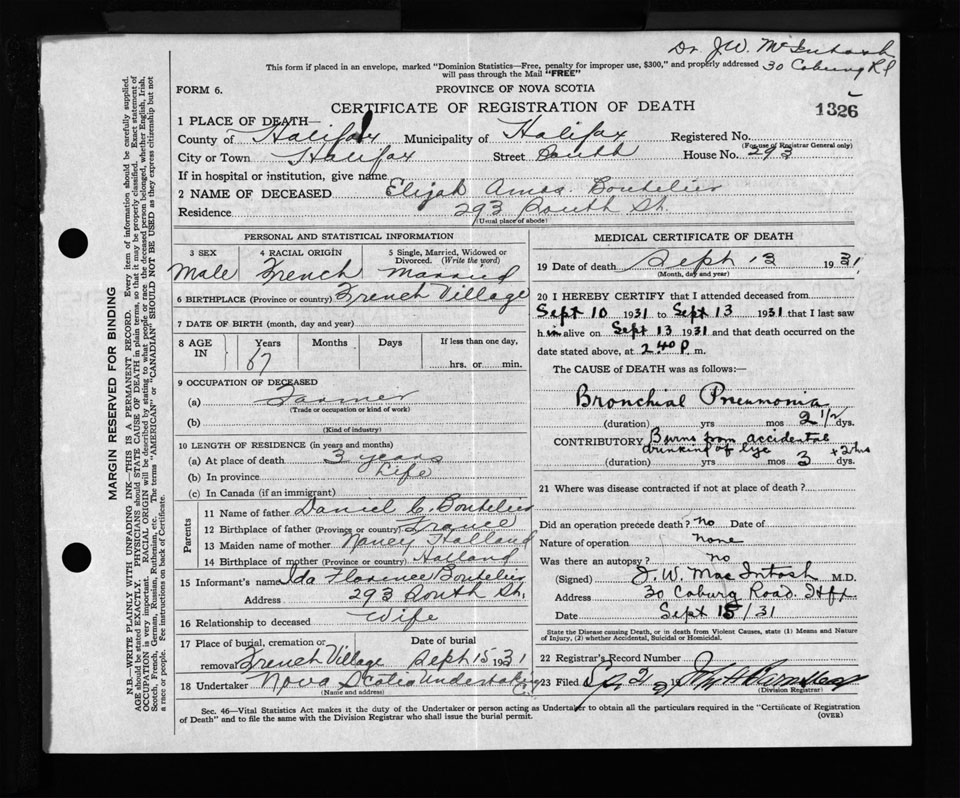 Dr. J.W. McIntosh
This form if placed in an envelope, marked "Dominion Statistics—Free, penalty for improper use, $300," and properly addressed 30 Coburg Rd
will pass through the Mail "FREE"
FORM 6. PROVINCE OF NOVA SCOTIA
CERTIFICATE OF REGISTRATION OF DEATH 1326
1 PLACE OF DEATH—
County of Halifax Municipality of Halifax Registered No.
(For use of Registrar General only)
City or Town Halifax Street South House No. 293
If in hospital or institution, give name
2 NAME OF DECEASED Elijah Amos Boutelier
Residence 293 South St.
(Usual place of abode)
PERSONAL AND STATISTICAL INFORMATION
3 SEX 4 RACIAL ORIGIN 5 Single, Married, Widowed or
Divorced. (Write the word)
Male French Married
6 BIRTHPLACE (Province or country) French Village
7 DATE OF BIRTH (month, day and year)
8 AGE IN Years Months Days If less than one day,
67 hrs. or min.
9 OCCUPATION OF DECEASED
(a) Farmer
(Trade or occupation or kind of work)
(b)
(Kind of industry)
10 LENGTH OF RESIDENCE (in years and months)
(a) At place of death 3 years
(b) In province Life
(c) In Canada (if an immigrant)
Parents
11 Name of father Daniel C. Boutelier
12 Birthplace of father (Province or country) France
13 Maiden name of mother Nancy Holland
14 Birthplace of mother (Province or country) Holland
15 Informant's name Ida Florence Boutelier
Address 293 South St.
16 Relationship to deceased Wife
17 Place of burial, cremation or Date of burial
removal French Village Sept 15 1931
18 Undertaker Nova Scotia Undertaking Co
(Name and address)
MEDICAL CERTIFICATE OF DEATH
19 Date of death Sept 13 1931
(Month, day and year)
20 I HEREBY CERTIFY that I attended deceased from
Sept 10 1931 to Sept 13 1931 that I last saw
h im alive on Sept 13 1931 and that death occurred on the
date stated above, at 2 40 P. m.
The CAUSE of DEATH was as follows:—
Bronchial Pneumonia
(duration) yrs mos 2 1/2 dys.
CONTRIBUTORY Burns from accidental
drinking of lye
(duration) yrs mos 3 + 3/hrs dys.
21 Where was disease contracted if not at place of death?
Did an operation precede death? no Date of
Nature of operation none
Was there an autopsy? no
(Signed) J.W. MacIntosh M.D.
Address 30 Coburg Road. Hfx.
Date Sept 15/31
State the Disease causing Death, or in death from Violent Causes, state (1) Means and Nature
of Injury, (2) whether Accidental, Suicidal or Homicidal.
22 Registrar's Record Number
23 Filed
(Division Registrar)
Sec. 46—Vital Statistics Act makes it the duty of the Undertaker or person acting as Undertaker to obtain all the particulars required in the "Certificate of Registration
of Death" and to file the same with the Division Registrar who shall issue the burial permit. (OVER)
MARGIN RESERVED FOR BINDING
N.B.—WRITE PLAINLY WITH UNFADING INK—THIS IS A PERMANENT RECORD. Every item of information should be carefully supplied.
AGE should be stated EXACTLY. PHYSICIANS should STATE CAUSE OF DEATH in plain terms, so that it may be properly classified. Exact statement of
OCCUPATION is very important. RACIAL ORIGIN will be described by stating to what people or race the deceased person belonged, whether English, Irish,
Scotch, French, German, Russian, Ruthenian, etc. The terms "AMERICAN" or "CANADIAN" SHOULD NOT BE USED as they express citizenship but not
a race or people. Fee instructions on back of Certificate.